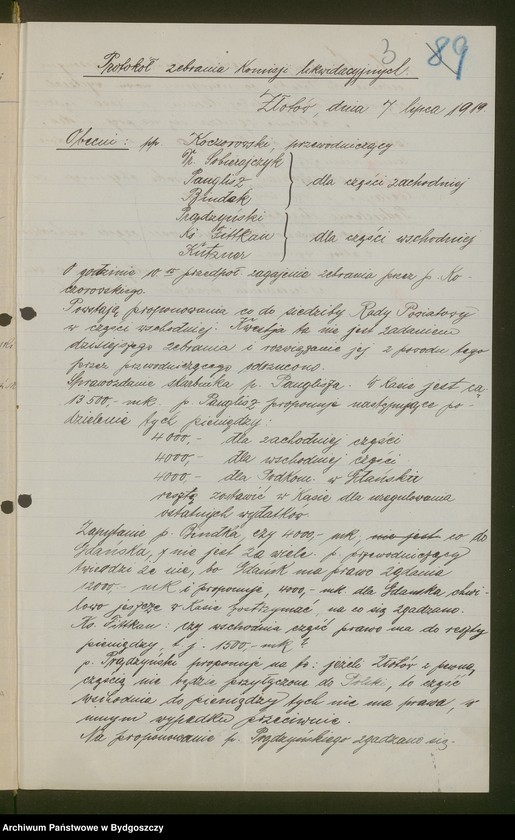 3 89
Protokół zebrania Komisji likwidacyjnych.
Złotów, dnia 7 lipca 1919
Obecni: pp Koczorowski, przewodniczący
Sobierajczyk
Panglisz
Bindak
dla części zachodniej
Prądzyński
Ks. Zittkau
Kützner
dla części wschodniej
O godzinie 10.tt przedpoł zagajenie zebrania przez p. Ko-
czorowskiego.
Powstają proponowania co do siedziby Rady Powiatowy
w części wschodniej. Kwestja ta nie jest zadaniem
dzisiejszego zebrania i rozwiązanie jej z powodu tego
przez przewodniczącego odrzucono.
Sprawozdanie skarbnika p. Panglisza. W Kasie jest ca
13 500,- mk. p. Panglisz proponuje następujące po-
dzielenie tych pieniędzy:
4000,- dla zachodniej części
4000,- dla wschodniej części
4000,- dla Podkom. w Gdańskie
resztę zostawić w Kasie dla uregulowania
ostatnych wydatków.
Zapytanie p. Bindka, czy 4000,- mk, co do
Gdańska, nie jest za wiele. p. przewodniczący
twierdzi że nie, bo Gdańsk ma prawo żądania
12000,- mk i proponuje, 4000,- mk dla Gdańska chwi-
lowo jeszcze w Kasie zostrzymać, na co się zgadzano.
Ks. Zittkau: czy wschodnia część prawo ma do reszty
pieniędzy, t. j. 1500,- mk?
p. Prądzyński proponuje na to: jeżeli Złotów z pewną
częścią nie będzie przyłączone do Polski, to część
wschodnia do pieniędzy tych nie ma prawa, w
innym wypadku przeciwnie.
Na proponowanie p. Prądzyńskiego zgadzano się.
Archiwum Państwowe w Bydgoszczy